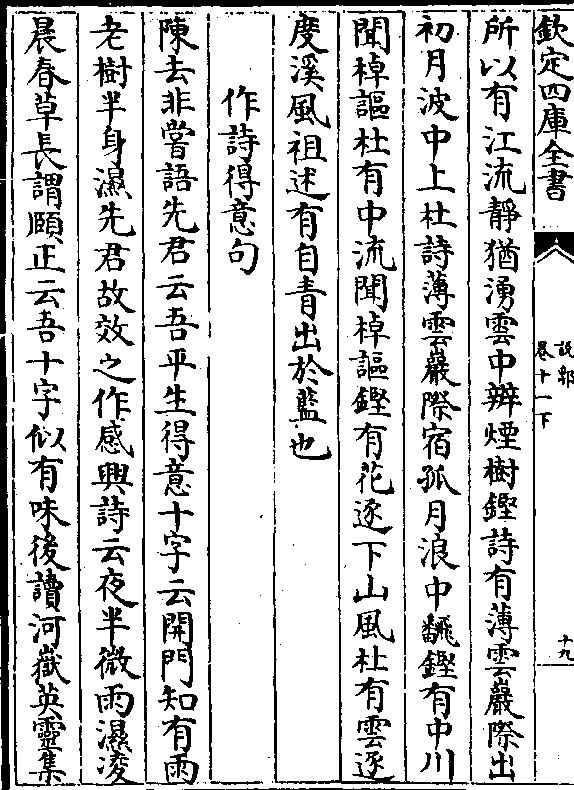 欽定四庫全書
說郛
卷十一下
十九
所以有江流靜猶湧雲中辨煙樹鏗詩有薄雲巖際出
初月波中上杜詩薄雲巖際宿孤月浪中飜鏗有中川
聞棹謳杜有中流聞棹謳鏗有花逐下山風杜有雲逐
度溪風祖述有自青出於藍也
作詩得意句
陳去非嘗語先君云吾平生得意十字云開門知有雨
老樹半身濕先君故效之作感興詩云夜半微雨濕凌
晨春草長謂頤正云吾十字似有味後讀河嶽英靈集